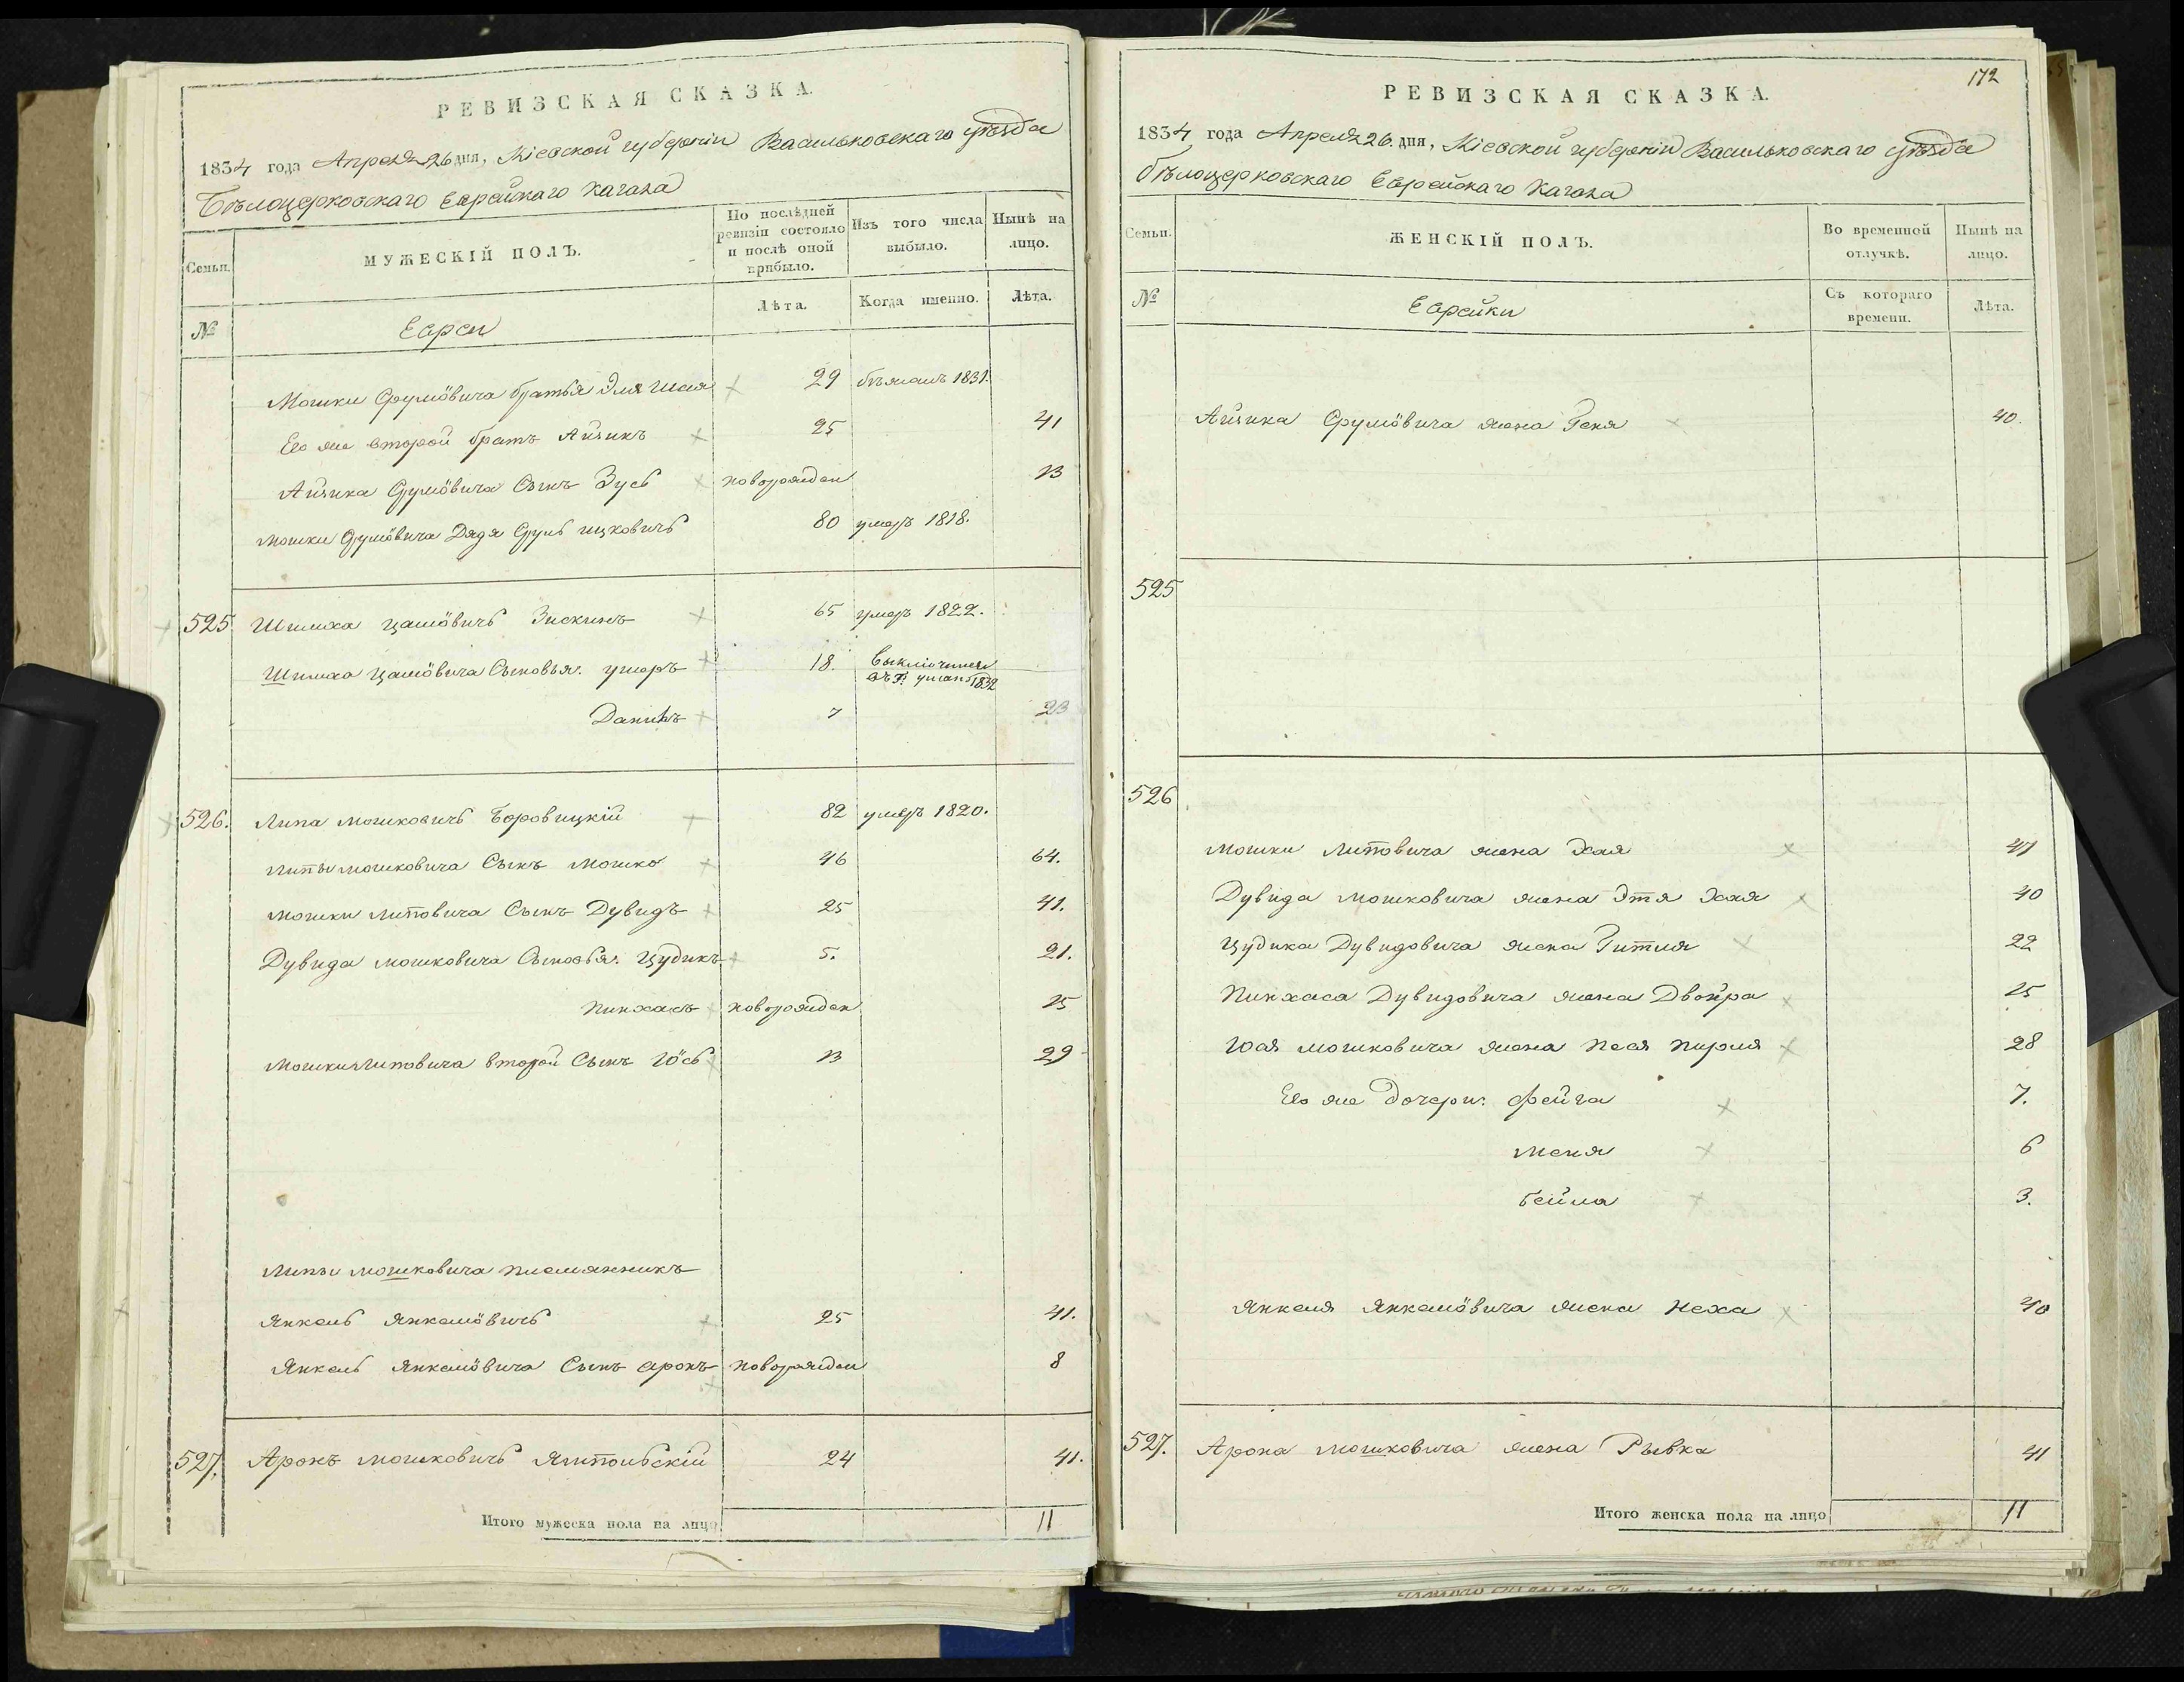 РЕВИЗСКАЯ СКАЗКА.
1834 года Апреля 26 дня, Кіевской губерніи Васильковскаго уѣзда
Бѣлоцерковскаго Еврейскаго Кагала
Семьи.
МУЖЕСКІЙ ПОЛЪ.
По послѣдней ревизіи состояло и послѣ оной прибыло.
Изъ того числа выбыло.
Нынѣ на лицо.
№
Евреи
Лѣта.
Когда именно.
Лѣта.
Мошки Срулёвича братья Эля Шая 29 бѣжалъ 1831.
Его же второй братъ Айзикъ 25 41
Айзика Срулёвича Сынъ Зусь новорожден 13
Мошки Срулёвича Дядя Сруль Ицковичь 80 умеръ 1818.
525. Шимха Цалёвичь Зискинъ 65 умеръ 1822.
Шимха Цалёвича Сыновья: 18. выключенъ
1832
Данилъ 7 23
526. Липа Мошковичь Боровицкій 82 умеръ 1820.
Липы Мошковича Сынъ Мошко 46 64.
Мошки Липовича Сынъ Дувидъ 25 41.
Дувида Мошковича Сыновья: Цудикъ 5. 21.
Пинхасъ новорожден 15
Мошки Липовича второй Сынъ Юсь 13 29
Липы Мошковича племянникъ
Янкель Янкелёвичь 25 41.
Янкель Янкелёвича Сынъ Аронъ новорожден 8
527. Аронъ Мошковичь 24 41.
Итого мужеска пола на лицо 11
172
РЕВИЗСКАЯ СКАЗКА.
1834 года Апреля 26. дня, Кіевской губерніи Васильковскаго уѣзда
Бѣлоцерковскаго Еврейскаго Кагала
Семьи.
ЖЕНСКІЙ ПОЛЪ.
Во временной отлучкѣ.
Нынѣ на лицо.
№
Еврейки
Съ котораго времени.
Лѣта.
Айзика Срулёвича жена Геня 40.
525
526
Мошки Липовича жена Хая 41
Дувида Мошковича жена Этя Хая 40
Цудика Дувидовича жена Гитля 22
Пинхаса Дувидовича жена Двойра 15
Юся Мошковича жена Песя Пирля 28
Его же дочери: Фейга 7.
Меня 6
Бейла 3.
Янкеля Янкелёвича жена Неха 40
527. Арона Мошковича жена Рывка 41
Итого женска пола на лицо 11